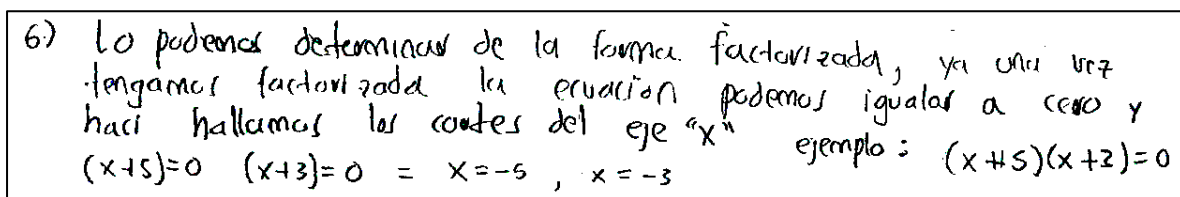 6.) Lo podemos determinar de la forma factorizada, ya una vez
tengamos factorizada la ecuacion podemos igualar a cero y
haci hallamos los cortes del eje "x" ejemplo: (x+5)(x+3)=0
(x+5)=0 (x+3)=0 = x=-5, x=-3